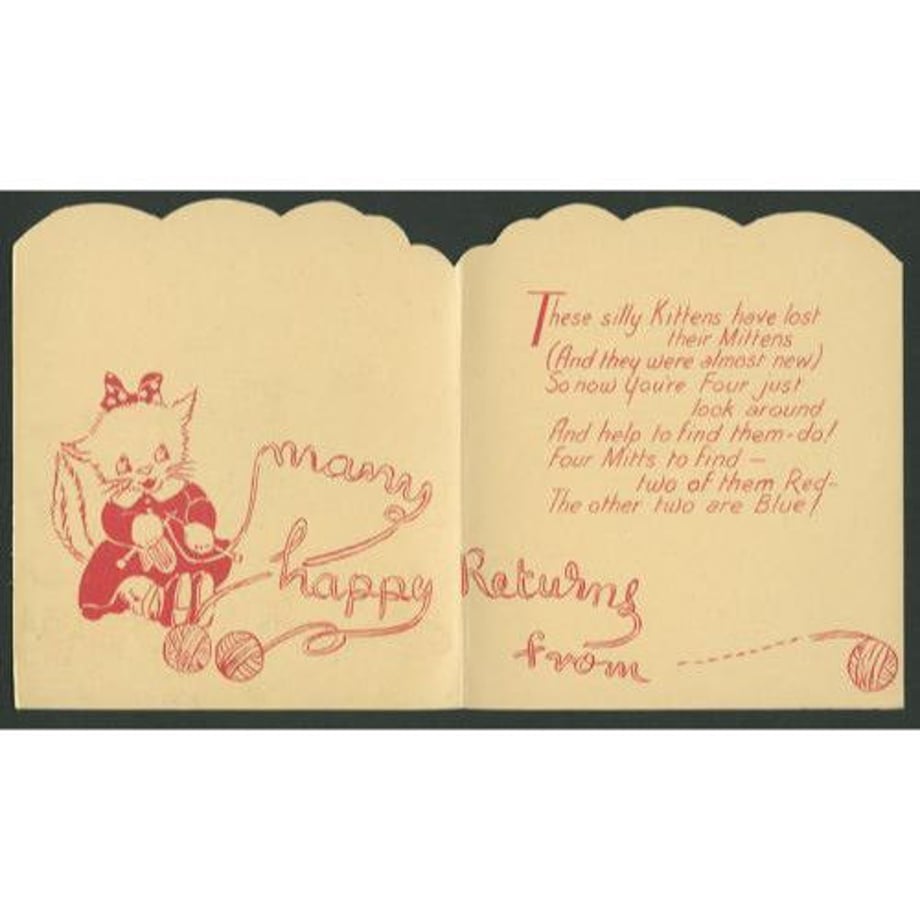 many
happy Returns
from
These silly Kittens have lost
their Mittens
(And they were almost new)
So now you're Four just
look around
And help to find them-do!
Four Mitts to find —
two of them Red-
The other two are Blue!